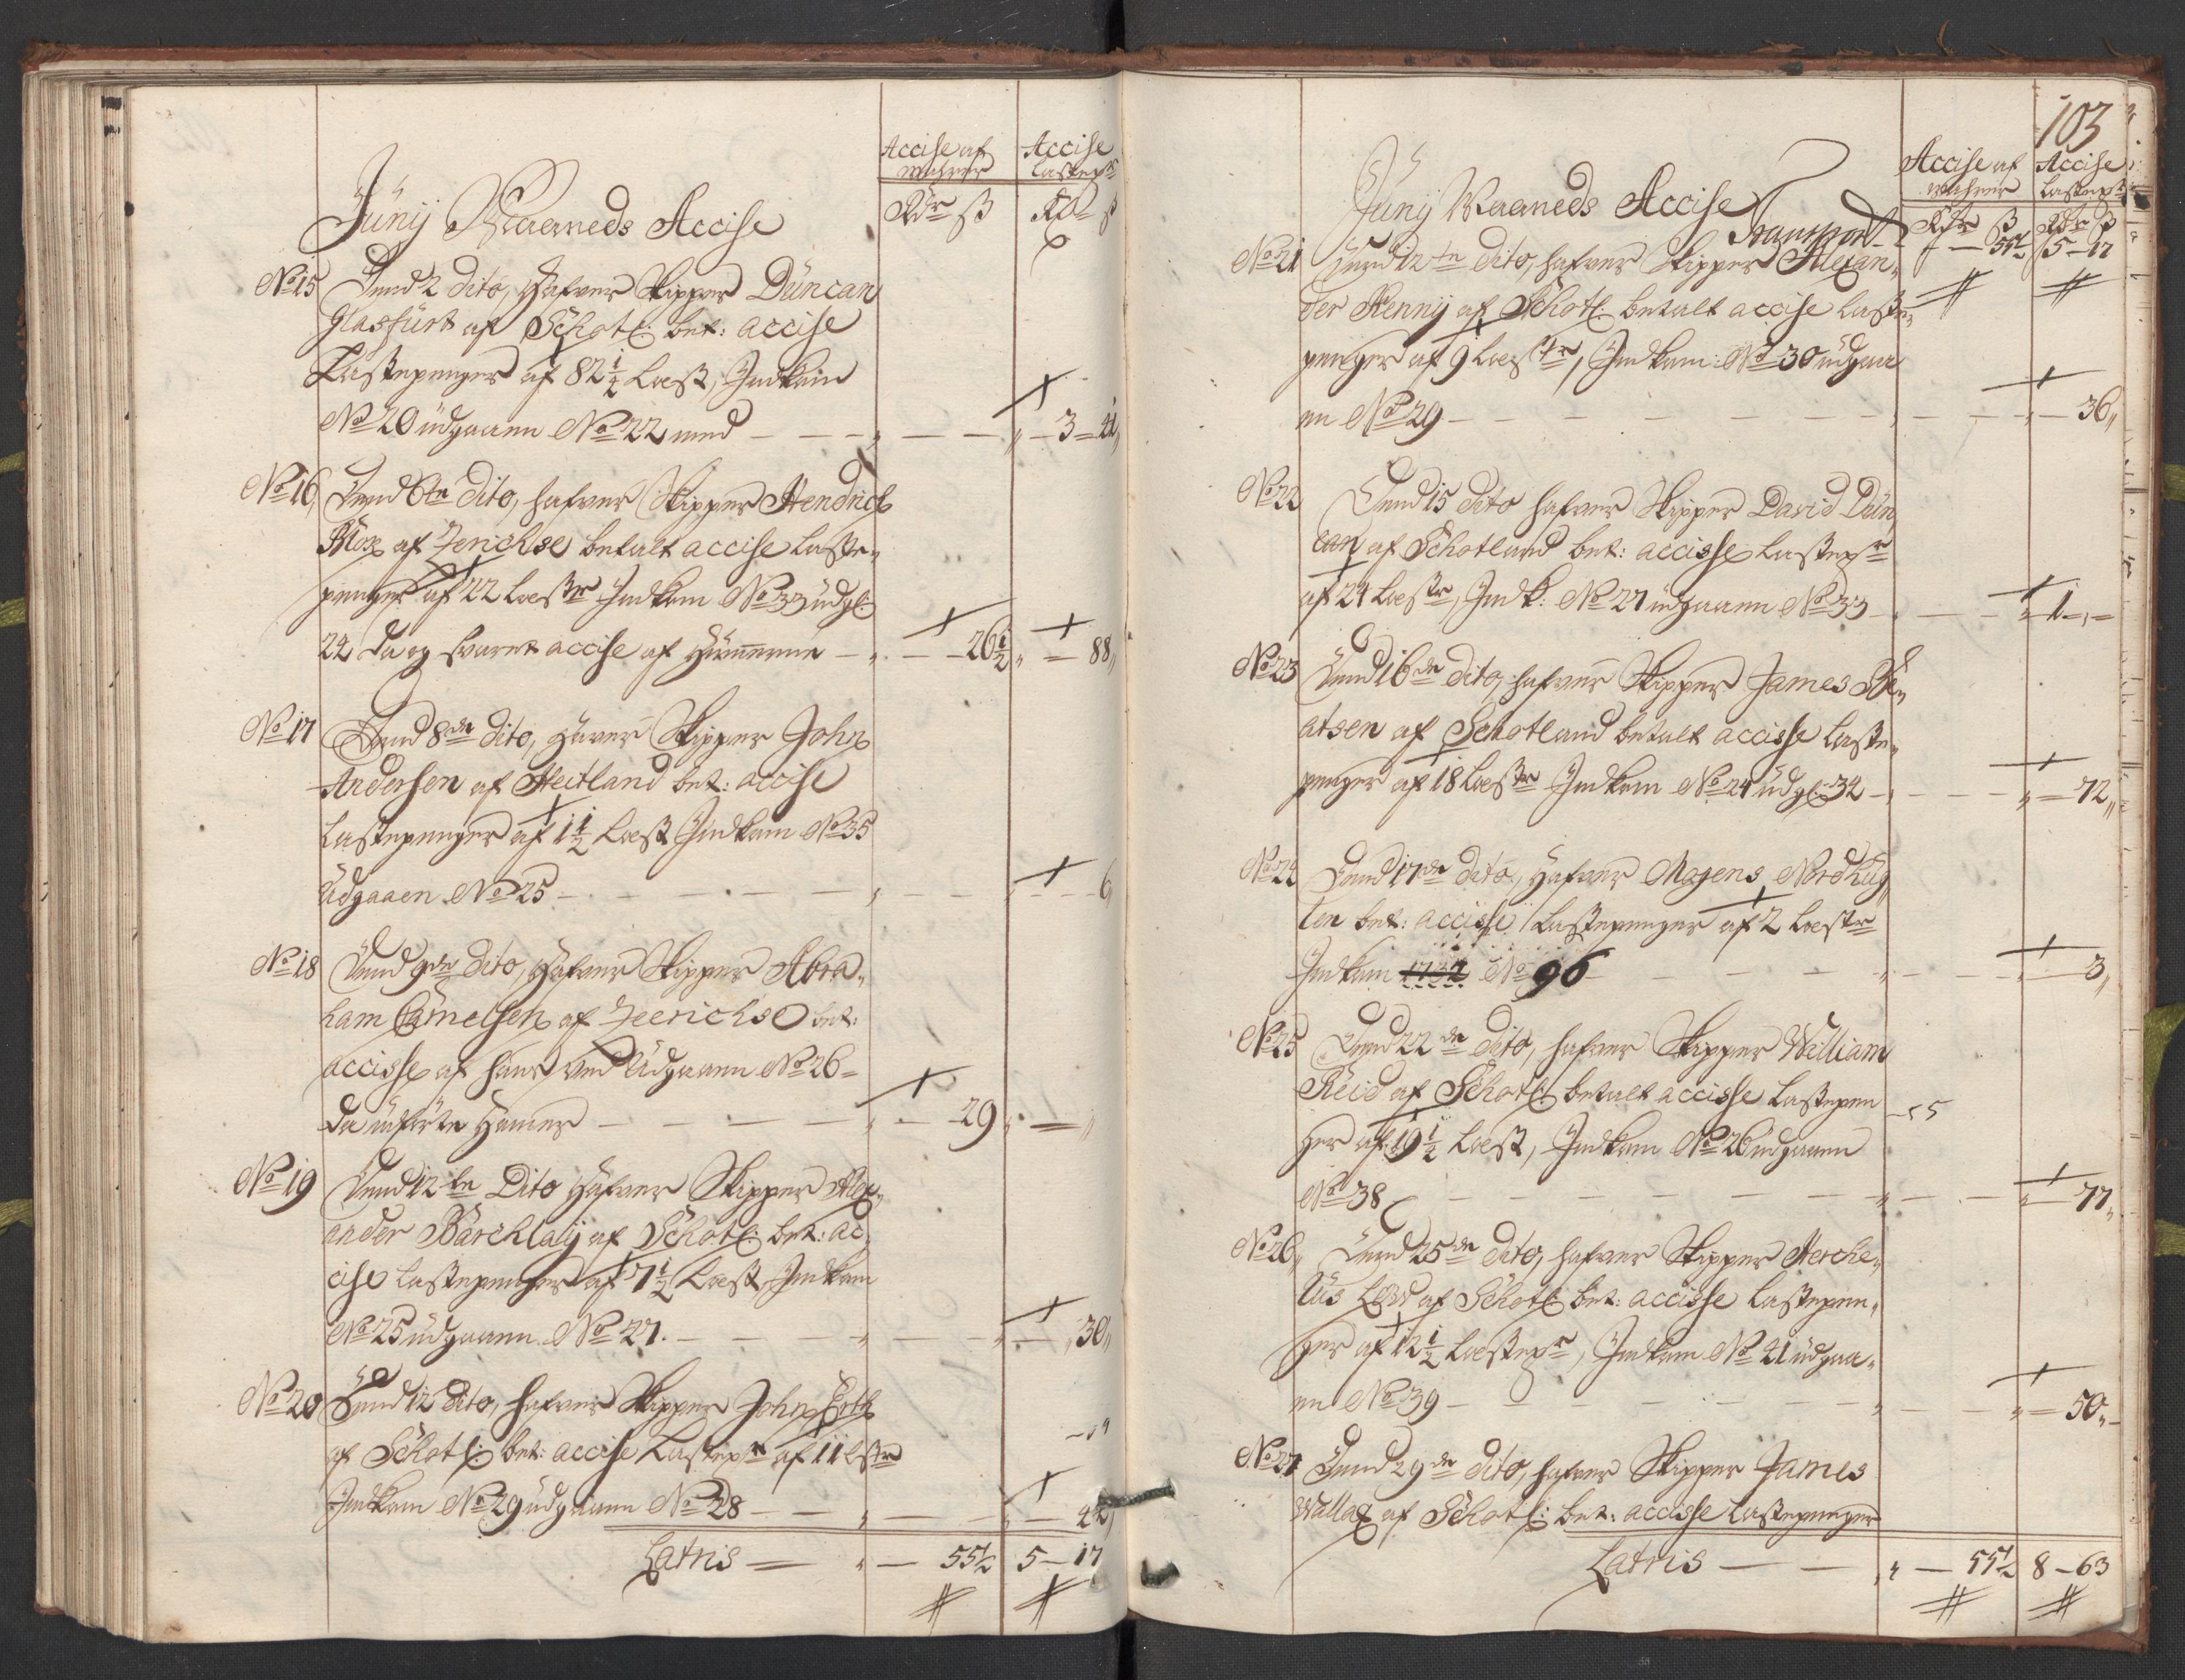 Accise af Accise
wahrer Lastep:r
Rdr ß Rdr ß
Junij Maaneds Accise
No 15 Dend 2 dito, Hafver Skipper Duncan
Glasfürt af Schotl: bet: accise
Lastepenger af 82 1/4 Læst, Indkam
No 20 udgaaen No 22 med - - - 3 - 41
No 16 Dend 6te Dito, hafver Skipper Hendrich
Blox af Zerichse betalt accise Laste-
penger af 22 Læstr Indkam No 33 udgl:
24 da og svaret accise af Hummerne - - 26 1/2 - 88
No 17 Dend 8de dito, Haver Skipper John
Andersen af Heitland bet: accise
Lastepenger af 1 1/2 Læst Indkam No 35
Udgaaen No 25 - - - 6
No 18 Dend 9de Dito, Hafver Skipper Abra-
ham Carnelsen af Zeerichse bet:
accisse af hans ved Udgaaen No 26 -
da udførte Humer - - - 29 -
No 19 Dend 12te Dito Hafver Skipper Alex-
ander Barchlaij af Schotl: bet: ac-
cise Lastepenger af 7 1/2 Læst, Indkam
No 25 udgaaen No 27. - - 30
No 20 Dend 12 dito, hafver Skipper John
af Schotl: bet: accise Lastepr af 11 Lstr
Indkam No 29 udgaaen No 28 - - - 44
Latris - - 55 1/2 5 - 17
103
Accise af Accise
wahrer Lastepr
Rdr ß Rdr ß
Junij Maaneds Accise
Transport - 55 1/2 5 - 17
No 21 Dend 12te Dito, hafver Skipper Alexan-
der Kennij af Schotl: betalt accise Laste-
penger af 9 Læstr, Indkam: No 30 udgaa
en No 29 - - - 36
No 22 Dend 15 dito hafver Skipper David Dun
can af Schotland bet: accisse Lastepr
af 24 Læstr, Indk: No 27 udgaaen No 33 - - 1 - -
No 23 Dend 16de dito, hafver Skipper James
atsen af Schotland betalt accisse Laste-
penger af 18 Læstr Indkam No 24 udgl: 34 - - 72
No 24 Dend 17de dito, Hafver Mogens Nordhug
len bet: accisse Lastepenger af 2 Læstr
Indkam No 96 - - - 3
No 25 Dend 22de dito, hafver Skipper William
Reid af Schotl: betalt accisse Lastepen
ger af 19 1/2 Læst, Indkam No 26 udgaaen
No 38 - - - 77
No 26 Dend 25de dito, hafver Skipper Herche-
lus af Schotl: bet: accisse Lastepen-
ger af 12 1/2 Læstepr, Indkam No 41 udgaa-
en No 39 - - - 50
No 27 Dend 29de dito, hafver Skipper James
Wallax af Schotl: bet: accisse Lastepenger
Latris - - 55 1/2 8 - 63